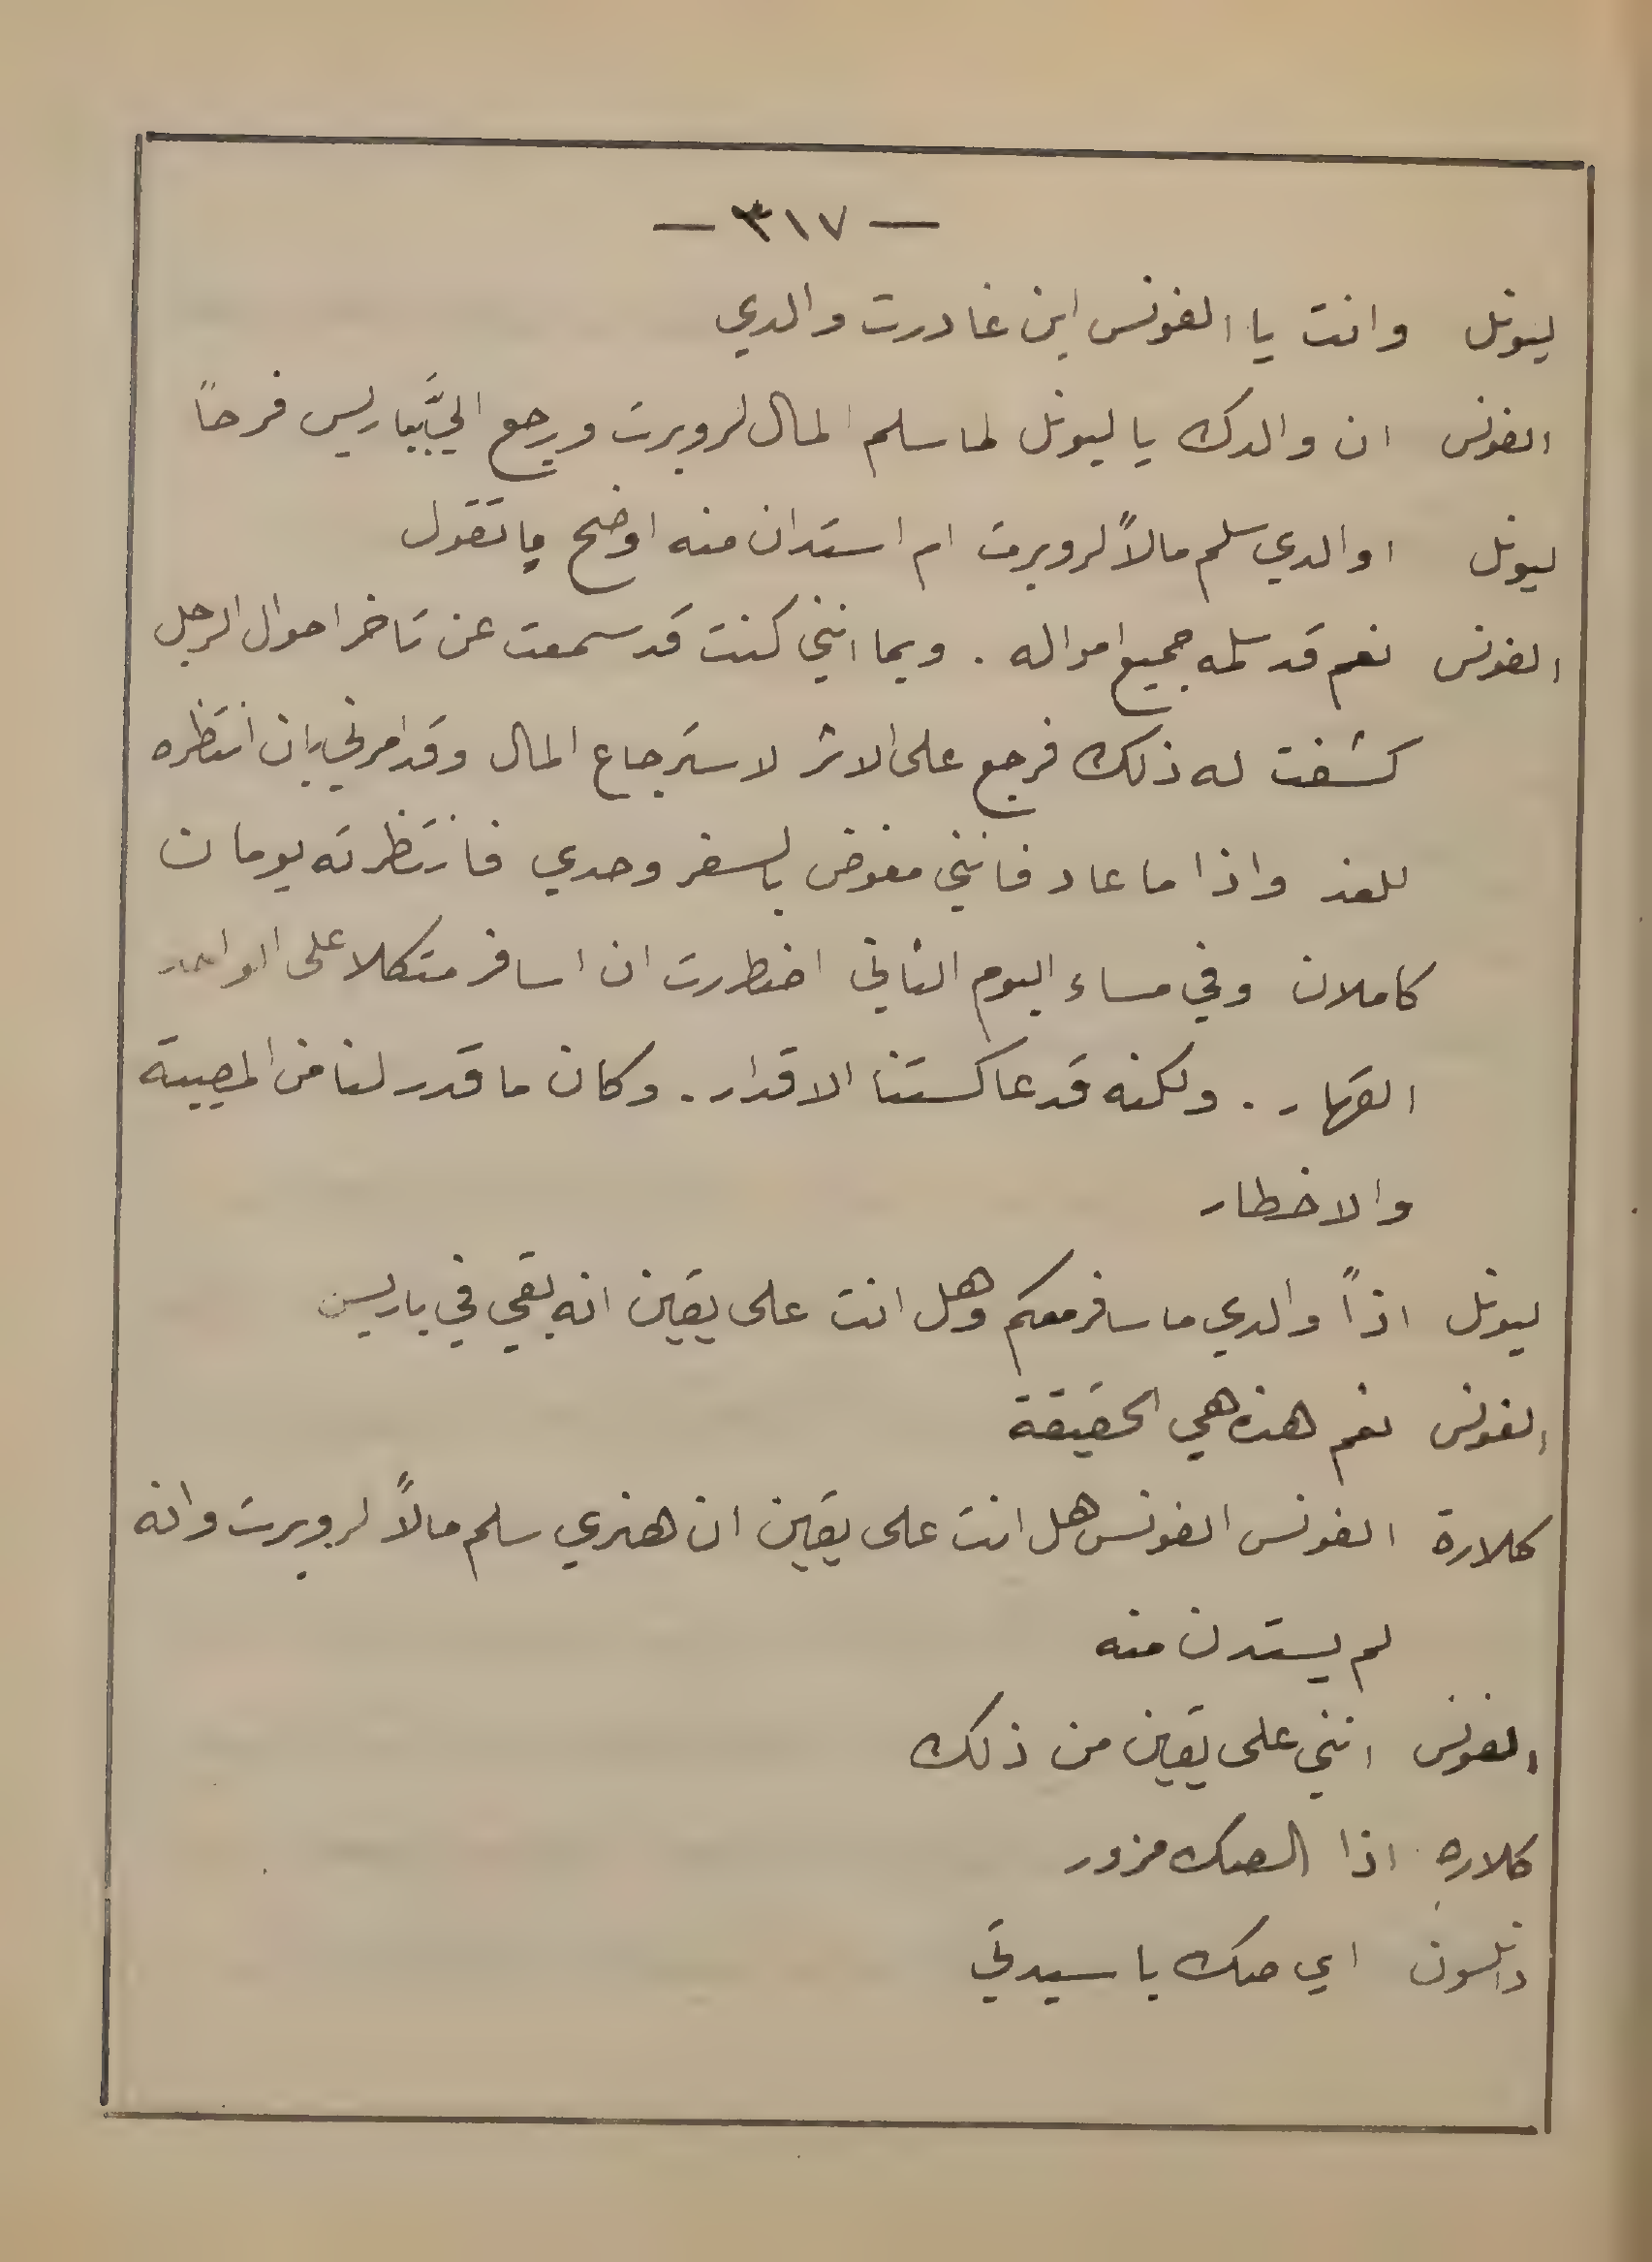 — ٣١٧ —
ليونل وانت يا الفونس اين غادرت والدي
الفونس ان والدك يا ليونل لما سلم المال لروبرت ورجع اليَّ بباريس فرحاً
ليونل اوالدي سلم مالاً لروبرت ام استدان منه اوضح ما تقول
الفونس نعم قد سلمه جميع امواله . وبما انني كنت قد سمعت عن تاخر احوال الرجل
كشفت له ذلك فرجع على الاثر لاسترجاع المال وقد امرني بان انتظره
للغد واذا ما عاد فانني مفوض بالسفر وحدي فانتظرته يومان
كاملان وفي مساء اليوم الثاني اضطررت ان اسافر متكلا على الواحد
القهار . ولكنه قد عاكستنا الاقدار . وكان ما قدر لنا من المصيبة
والاخطار
ليونل اذاً والدي ما سافر معكم وهل انت على يقين انه بقي في باريس
الفونس نعم هذه هي الحقيقة
كلارة الفونس الفونس هل انت على يقين ان هنري سلم مالاً لروبرت وانه
لم يستدن منه
الفونس انني على يقين من ذلك
كلاره اذا الصك مزور
دانلسون اي صك يا سيدتي